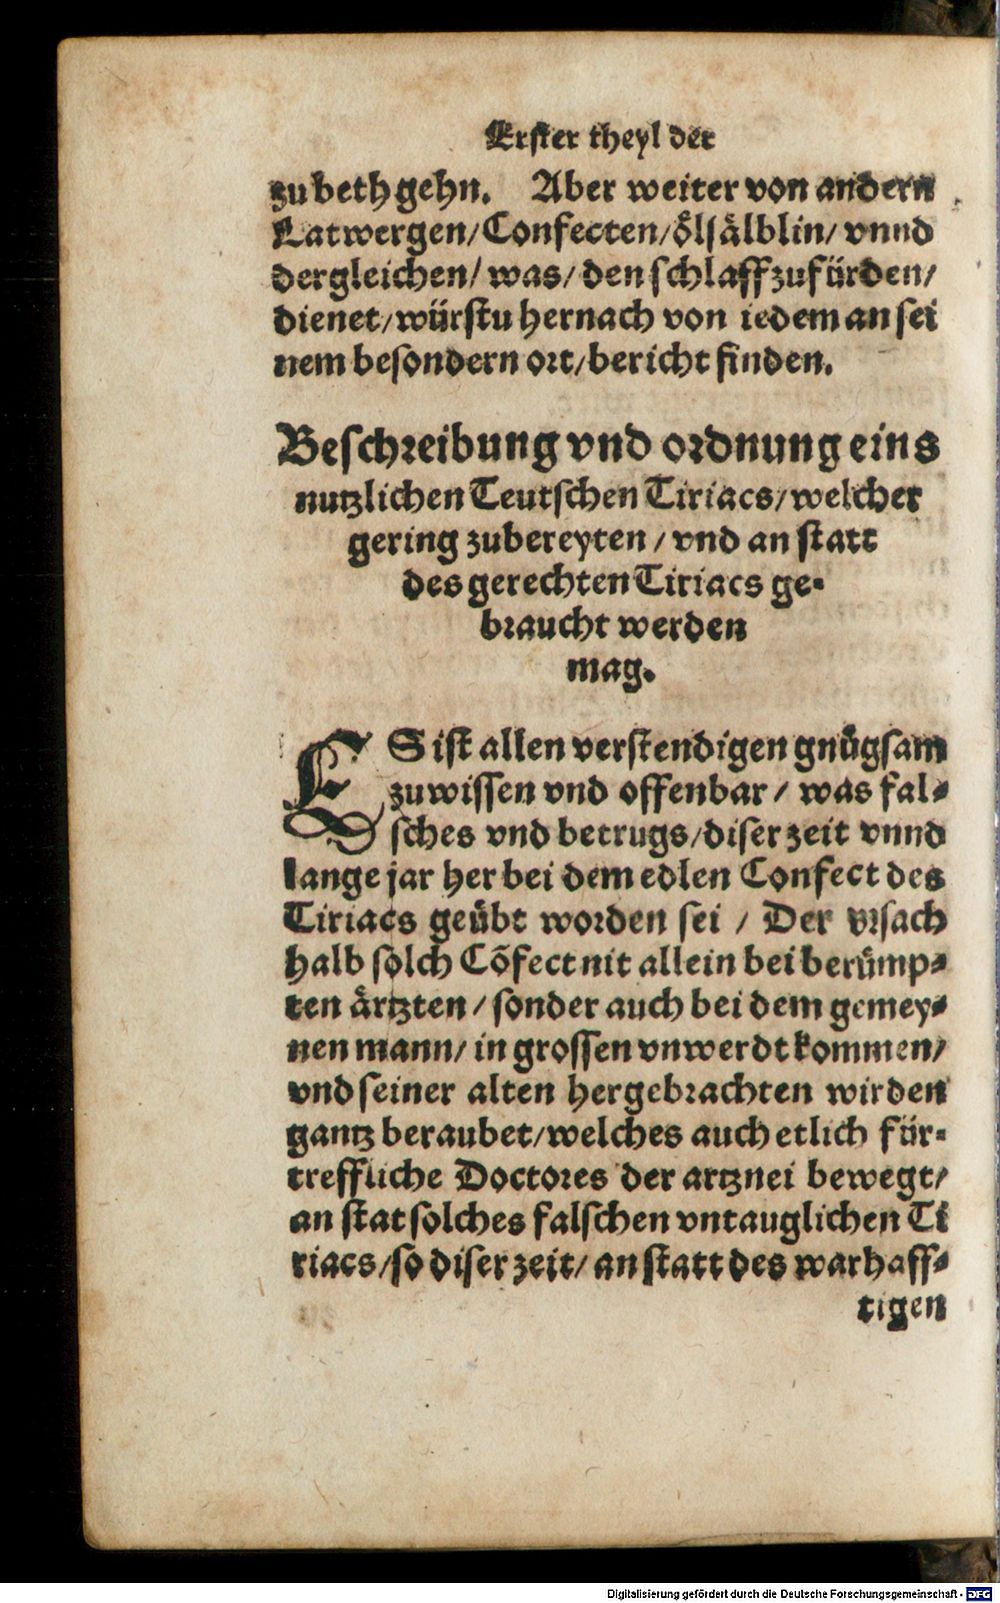 Erster theyl der
zu beth gehn. Aber weiter von andern
Latwergen/ Confecten/ ölsälblin/ vnnd
dergleichen/ was/ den schlaff zufürden/
dienet/ würstu hernach von iedem an sei
nem besondern ort/ bericht finden.
Beschreibung vnd ordnung eins
nutzlichen Teutschen Tiriacs/ welcher
gering zubereyten / vnd an statt
des gerechten Tiriacs ge-
braucht werden
mag.
ES ist allen verstendigen gnůgsam
zuwissen vnd offenbar / was fal-
sches vnd betrugs/ diser zeit vnnd
lange jar her bei dem edlen Confect des
Tiriacs geübt worden sei / Der vrsach
halb solch Cõfect nit allein bei berümp-
ten ärtzten / sonder auch bei dem gemey-
nen mann/ in grossen vnwerdt kommen/
vnd seiner alten hergebrachten wirden
gantz beraubet/ welches auch etlich für-
treffliche Doctores der artznei bewegt/
an stat solches falschen vntauglichen Ti
riacs/ so diser zeit/ an statt des warhaff-
tigen
Digitalisierung gefördert durch die Deutsche Forschungsgemeinschaft - DFG